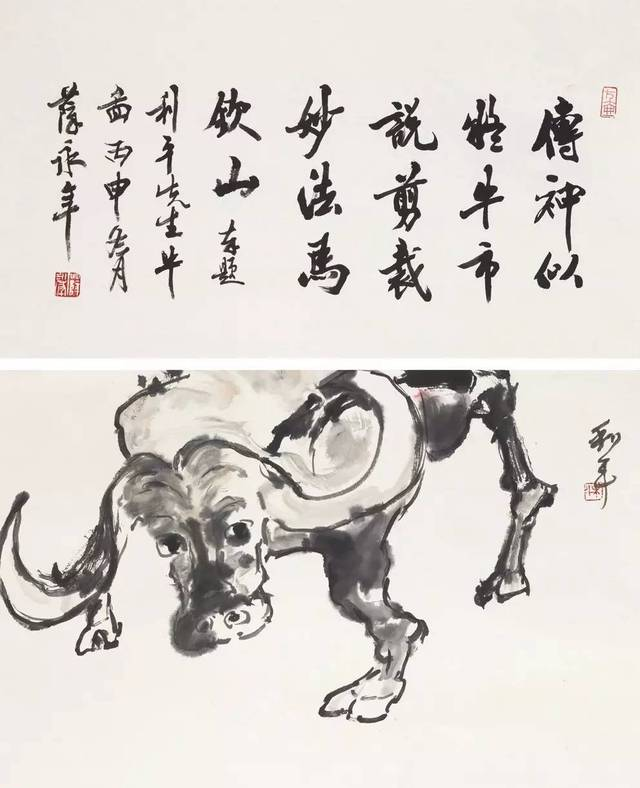 傳神似
牛市
說剪裁
妙法馬
欽山奉題
利平先生牛
畫丙申冬月
薛永年
利平